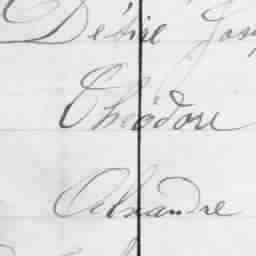 Désiré Jos
Théodore
Alexandre